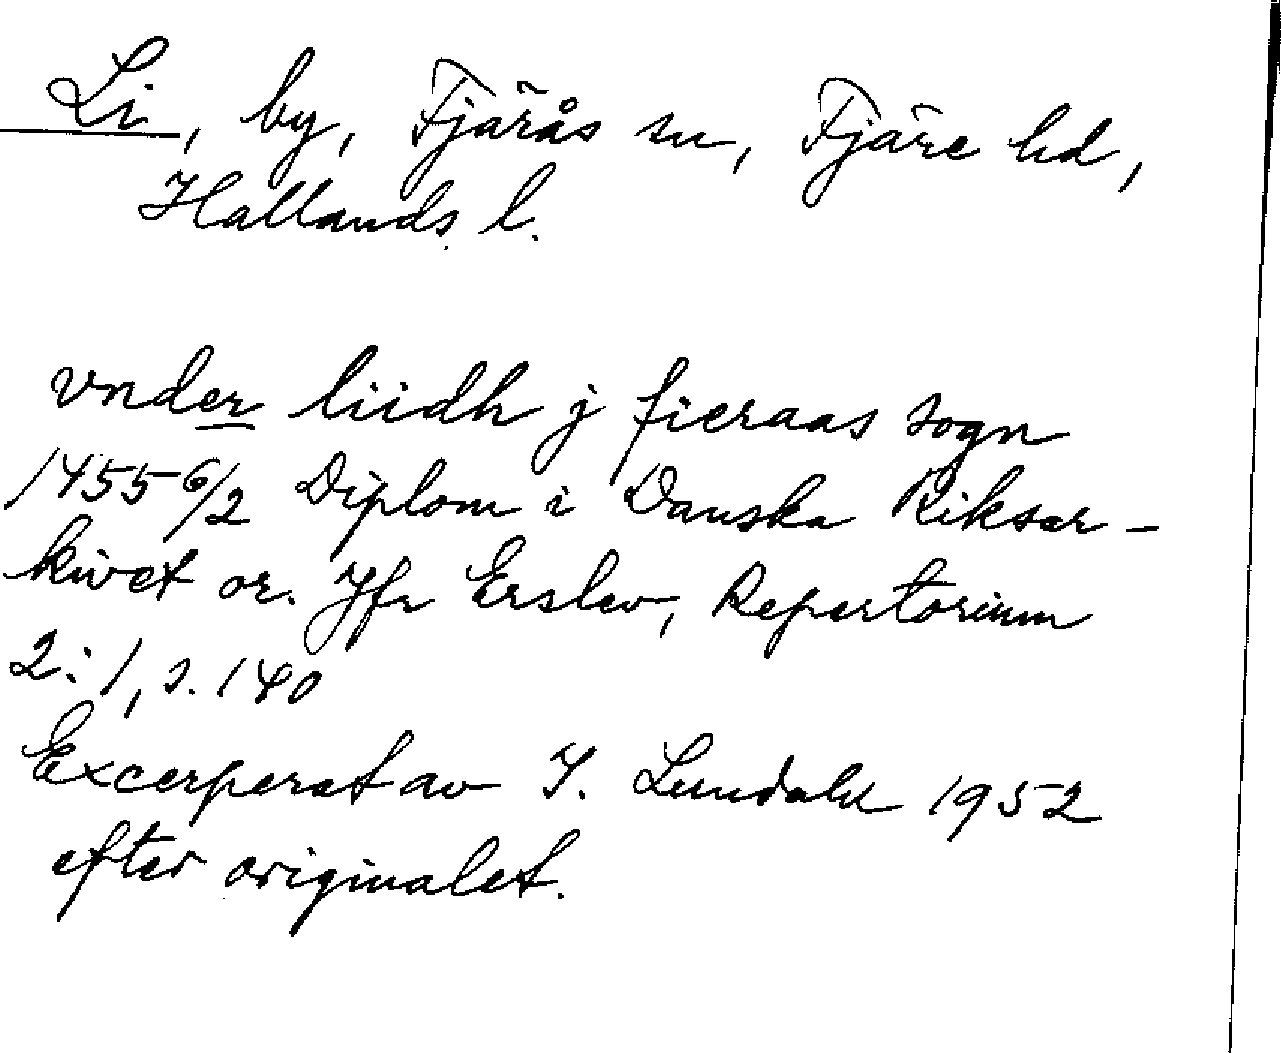 Li, by, Fjärås sn, Fjäre hd,
Hallands l.
vnder liidh j fieraas sogn
1455 6/2 Diplom i Danska Riksar-
kivet or. Jfr Erslev, Repertorium
2:1, s. 140
Excerperat av I. Lundahl 1952
efter originalet.